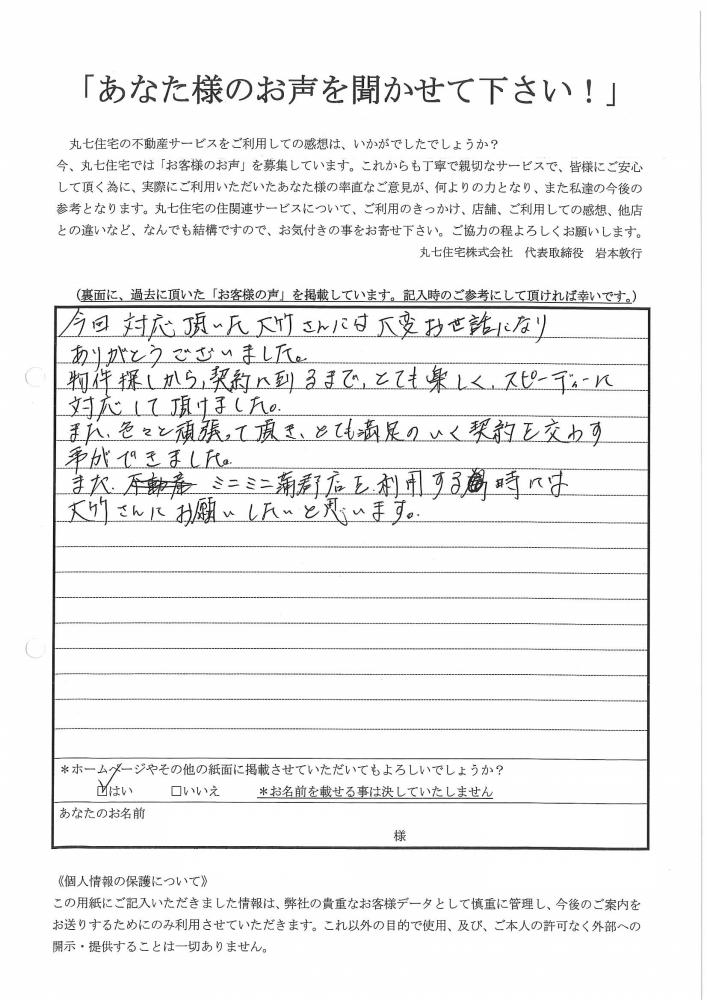 「あなた様のお声を聞かせて下さい！」
丸七住宅の不動産サービスをご利用しての感想は、いかがでしたでしょうか？
今、丸七住宅では「お客様のお声」を募集しています。これからも丁寧で親切なサービスで、皆様にご安心
して頂く為に、実際にご利用いただいたあなた様の率直なご意見が、何よりの力となり、また私達の今後の
参考となります。丸七住宅の住関連サービスについて、ご利用のきっかけ、店舗、ご利用しての感想、他店
との違いなど、なんでも結構ですので、お気付きの事をお寄せ下さい。ご協力の程よろしくお願いします。
丸七住宅株式会社　代表取締役　岩本敦行
（裏面に、過去に頂いた「お客様の声」を掲載しています。記入時のご参考にして頂ければ幸いです。）
今回 対応 頂いた 大竹さんには 大変お世話になり
ありがとうございました。
物件探しから、契約に到るまで、とても楽しく、スピーディーに
対応して頂けました。
また、色々と頑張って頂き、とても満足のいく契約を交わす
事ができました。
また、不動産 ミニミニ蒲郡店を利用する 時には
大竹さんにお願いしたいと思います。
＊ホームページやその他の紙面に掲載させていただいてもよろしいでしょうか？
☑はい　□いいえ　＊お名前を載せる事は決していたしません
あなたのお名前
様
《個人情報の保護について》
この用紙にご記入いただきました情報は、弊社の貴重なお客様データとして慎重に管理し、今後のご案内を
お送りするためにのみ利用させていただきます。これ以外の目的で使用、及び、ご本人の許可なく外部への
開示・提供することは一切ありません。